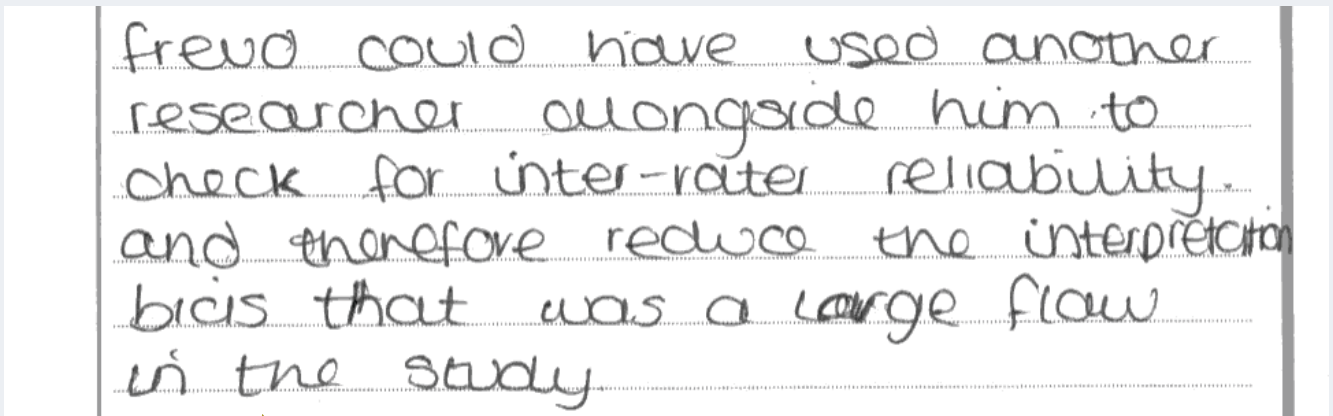 freud could have used another
researcher allongside him to
check for inter-rater reliability.
and therefore reduce the interpretation
bias that was a large flaw
in the study.